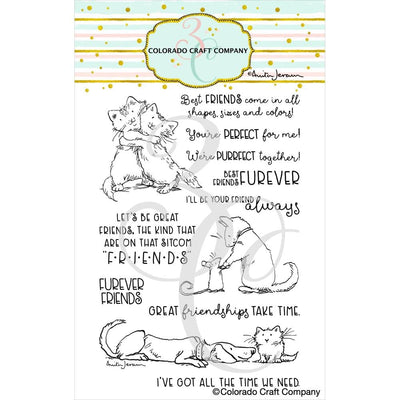 COLORADO CRAFT COMPANY
©Anita Jeram
Best FRIENDS come in all
shapes, sizes and colors!
You're PERFECT for me!
We're PURRFECT together!
BEST
FRIENDS FUREVER
I'LL BE YOUR FRIEND always
LET'S BE GREAT
FRIENDS, THE KIND THAT
ARE ON THAT SITCOM
"F·R·I·E·N·D·S"
FUREVER
FRIENDS
GREAT friendships TAKE TIME.
Anita Jeram
I'VE GOT ALL THE TIME WE NEED.
©Colorado Craft Company